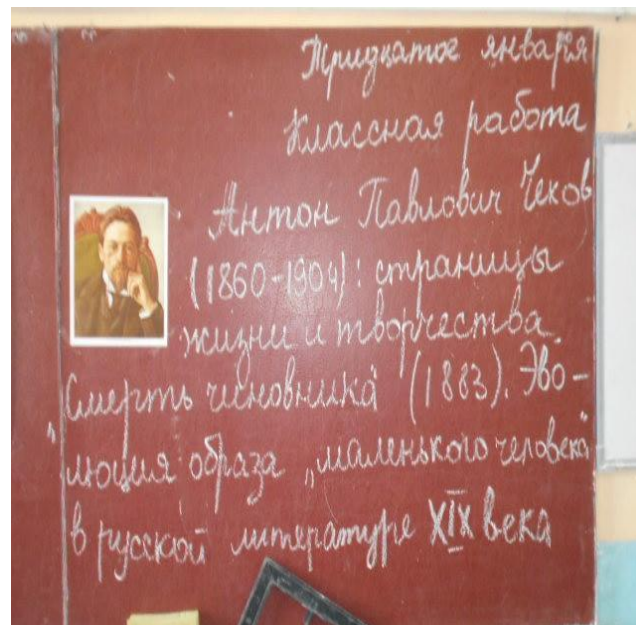 Тридцатое января
Классная работа
Антон Павлович Чехов
(1860-1904): страницы
жизни и творчества.
„Смерть чиновника" (1883). Эво-
люция образа „маленького человека"
в русской литературе XIX века